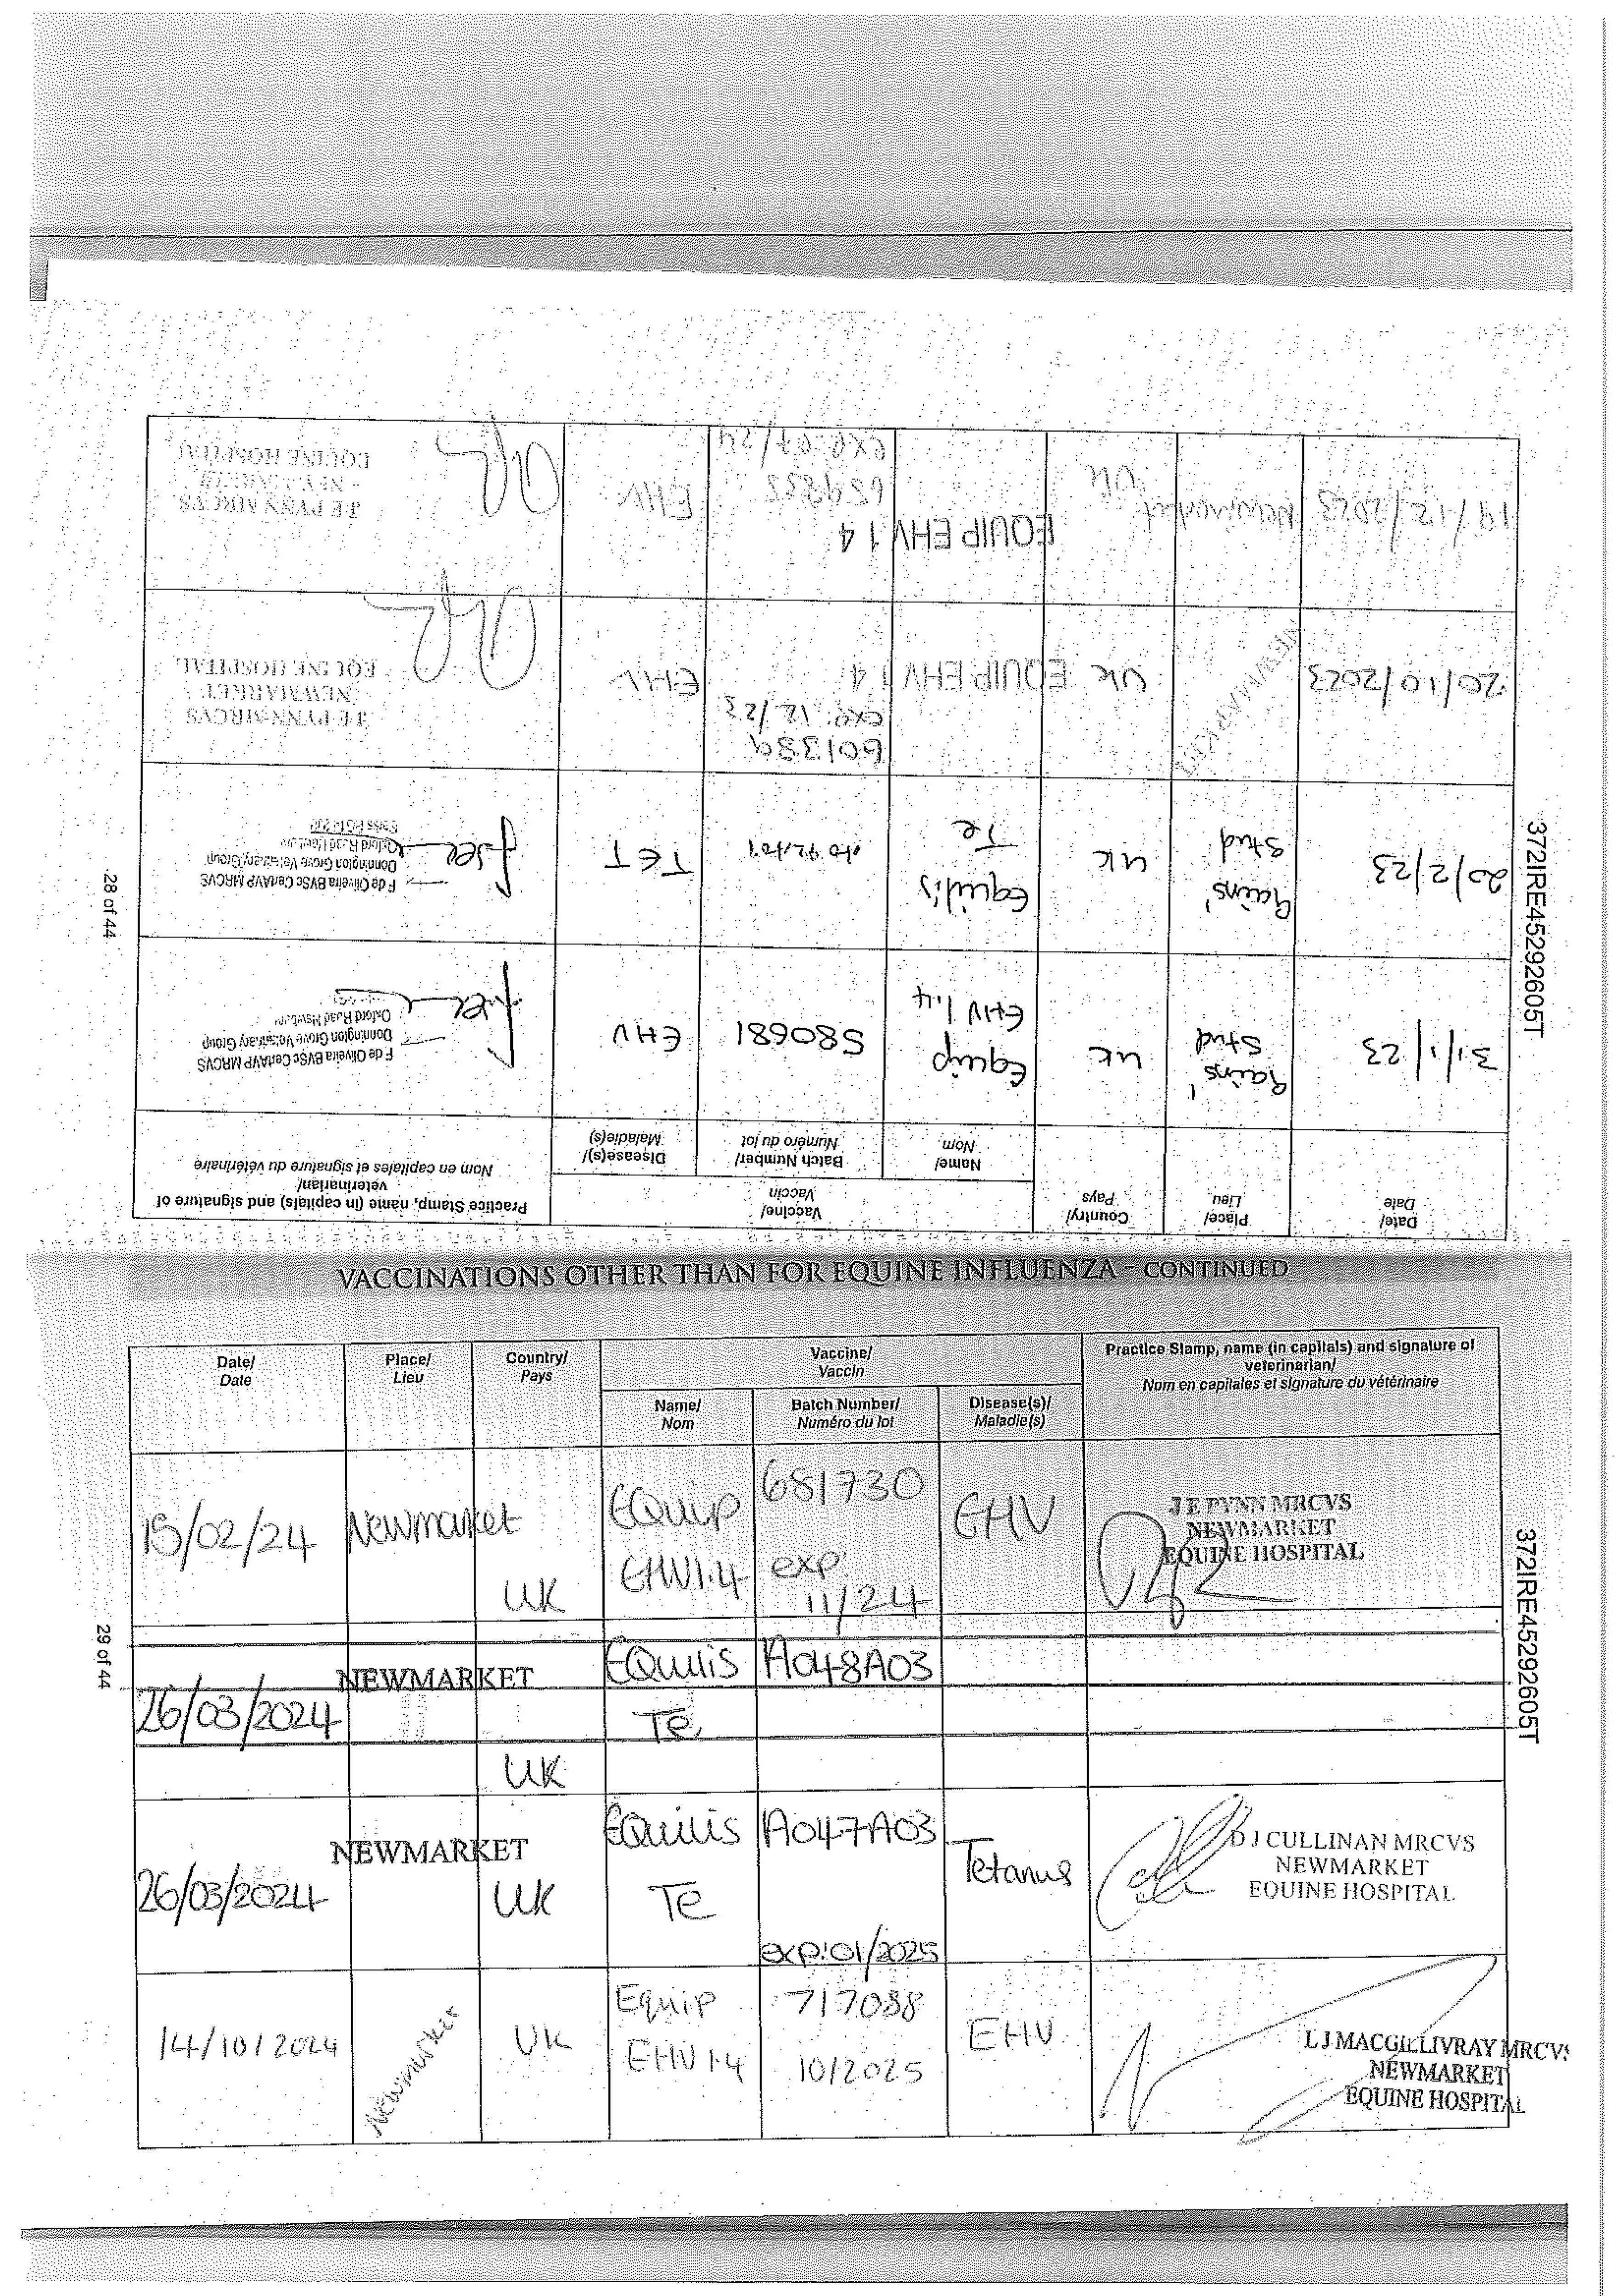 28 of 44
372IRE45292605T
Date/
Date
Place/
Lieu
Country/
Pays
Vaccine/
Vaccin
Name/
Nom
Batch Number/
Numéro du lot
Disease(s)/
Maladie(s)
Practice Stamp, name (in capitals) and signature of
veterinarian/
Nom en capitales et signature du vétérinaire
31/1/23
Stud
UK
Equip
EHV 1.4
580681
EHV
F de Oliveira BVSc CertAVP MRCVS
Donnington Grove Veterinary Group
Oxford Road Newbury
20/2/23
Stud
UK
Equilis
Te
TET
F de Oliveira BVSc CertAVP MRCVS
Donnington Grove Veterinary Group
Oxford Road Newbury
20/10/2023
NEWMARKET
UK
EQUIP EHV 1 4
601389
exp 12/23
EHV
J E PYNN MRCVS
NEWMARKET
EQUINE HOSPITAL
19/12/2023
Newmarket
UK
EQUIP EHV 1 4
exp 07/24
EHV
J E PYNN MRCVS
NEWMARKET
EQUINE HOSPITAL
VACCINATIONS OTHER THAN FOR EQUINE INFLUENZA – CONTINUED
29 of 44
372IRE45292605T
Date/
Date
Place/
Lieu
Country/
Pays
Vaccine/
Vaccin
Name/
Nom
Batch Number/
Numéro du lot
Disease(s)/
Maladie(s)
Practice Stamp, name (in capitals) and signature of
veterinarian/
Nom en capitales et signature du vétérinaire
15/02/24
Newmarket
UK
EQuip
EHV1.4
681730
exp:
11/24
EHV
J E PYNN MRCVS
NEWMARKET
EQUINE HOSPITAL
26/03/2024
NEWMARKET
UK
EQuilis
Te
A048A03
26/03/2024
NEWMARKET
UK
EQuilis
Te
A047A03
exp:01/2025
Tetanus
D J CULLINAN MRCVS
NEWMARKET
EQUINE HOSPITAL
14/10/2024
Newmarket
UK
Equip
EHV 1.4
717088
10/2025
EHV
L J MACGILLIVRAY MRCVS
NEWMARKET
EQUINE HOSPITAL